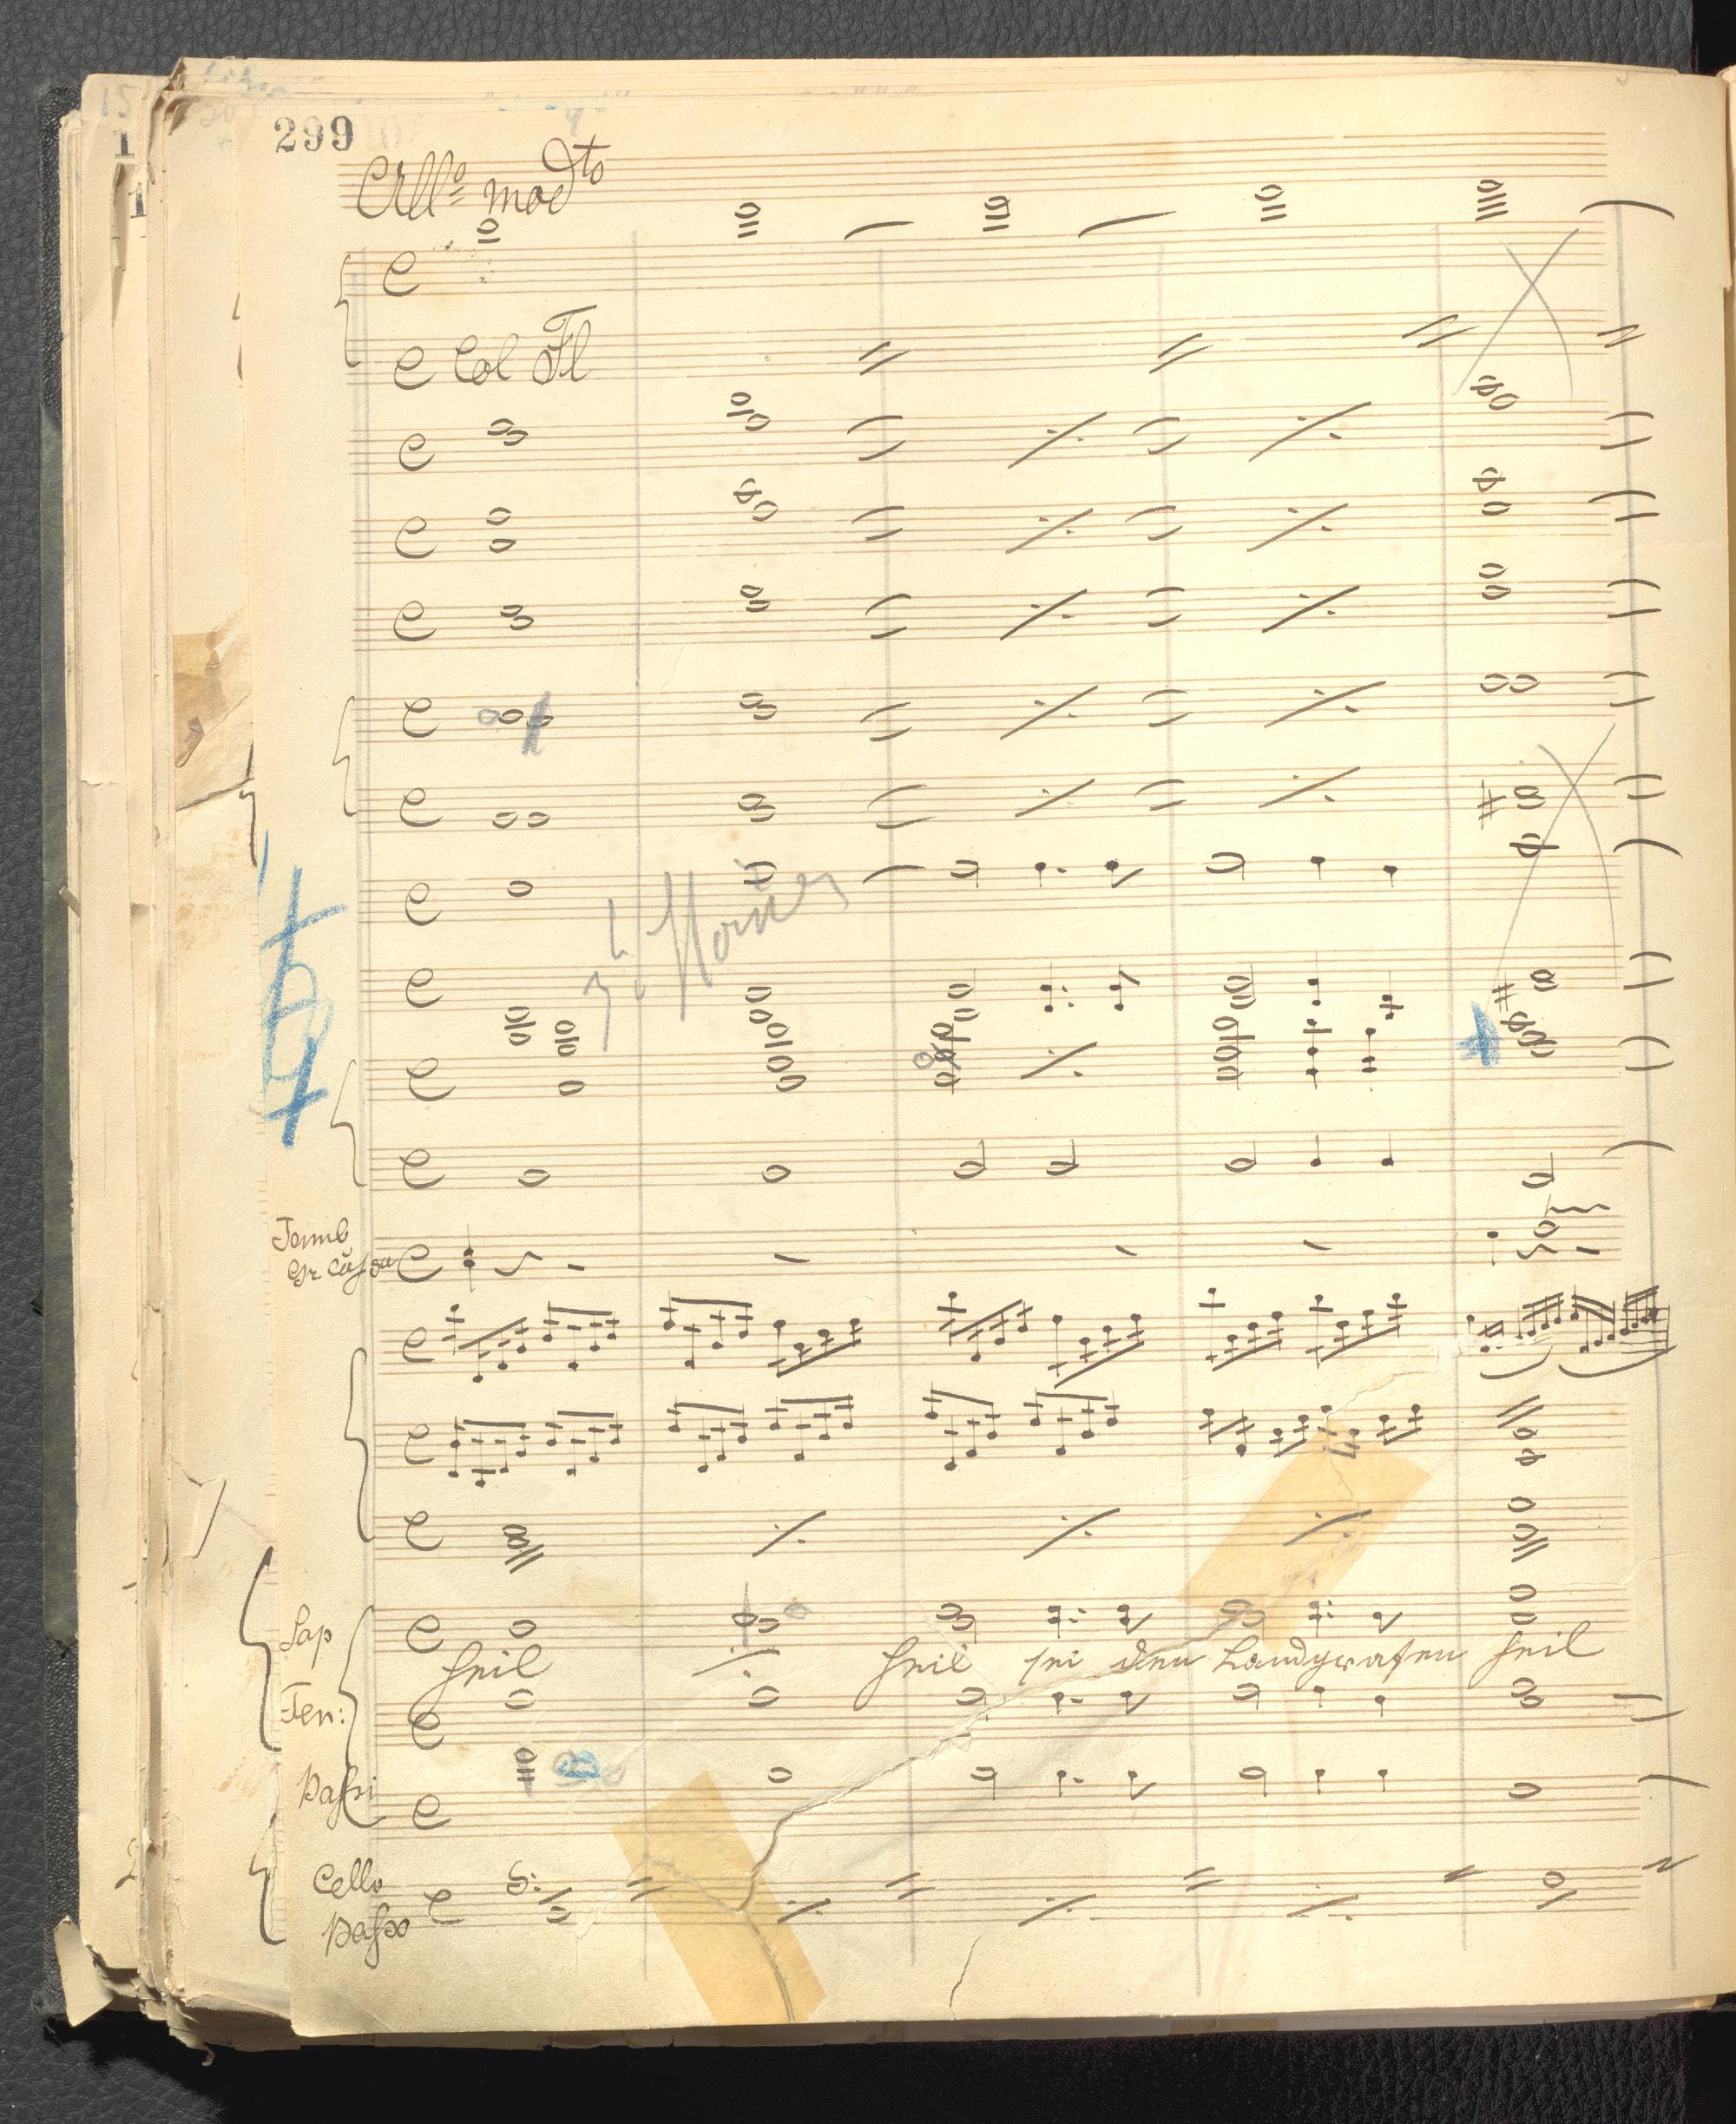 299
All° modto
Col Fl
Tamb
Gr Caßa
Sap
Heil Heil sei den Landgrafen Heil
Ten:
Baßi
Cello
Baßo